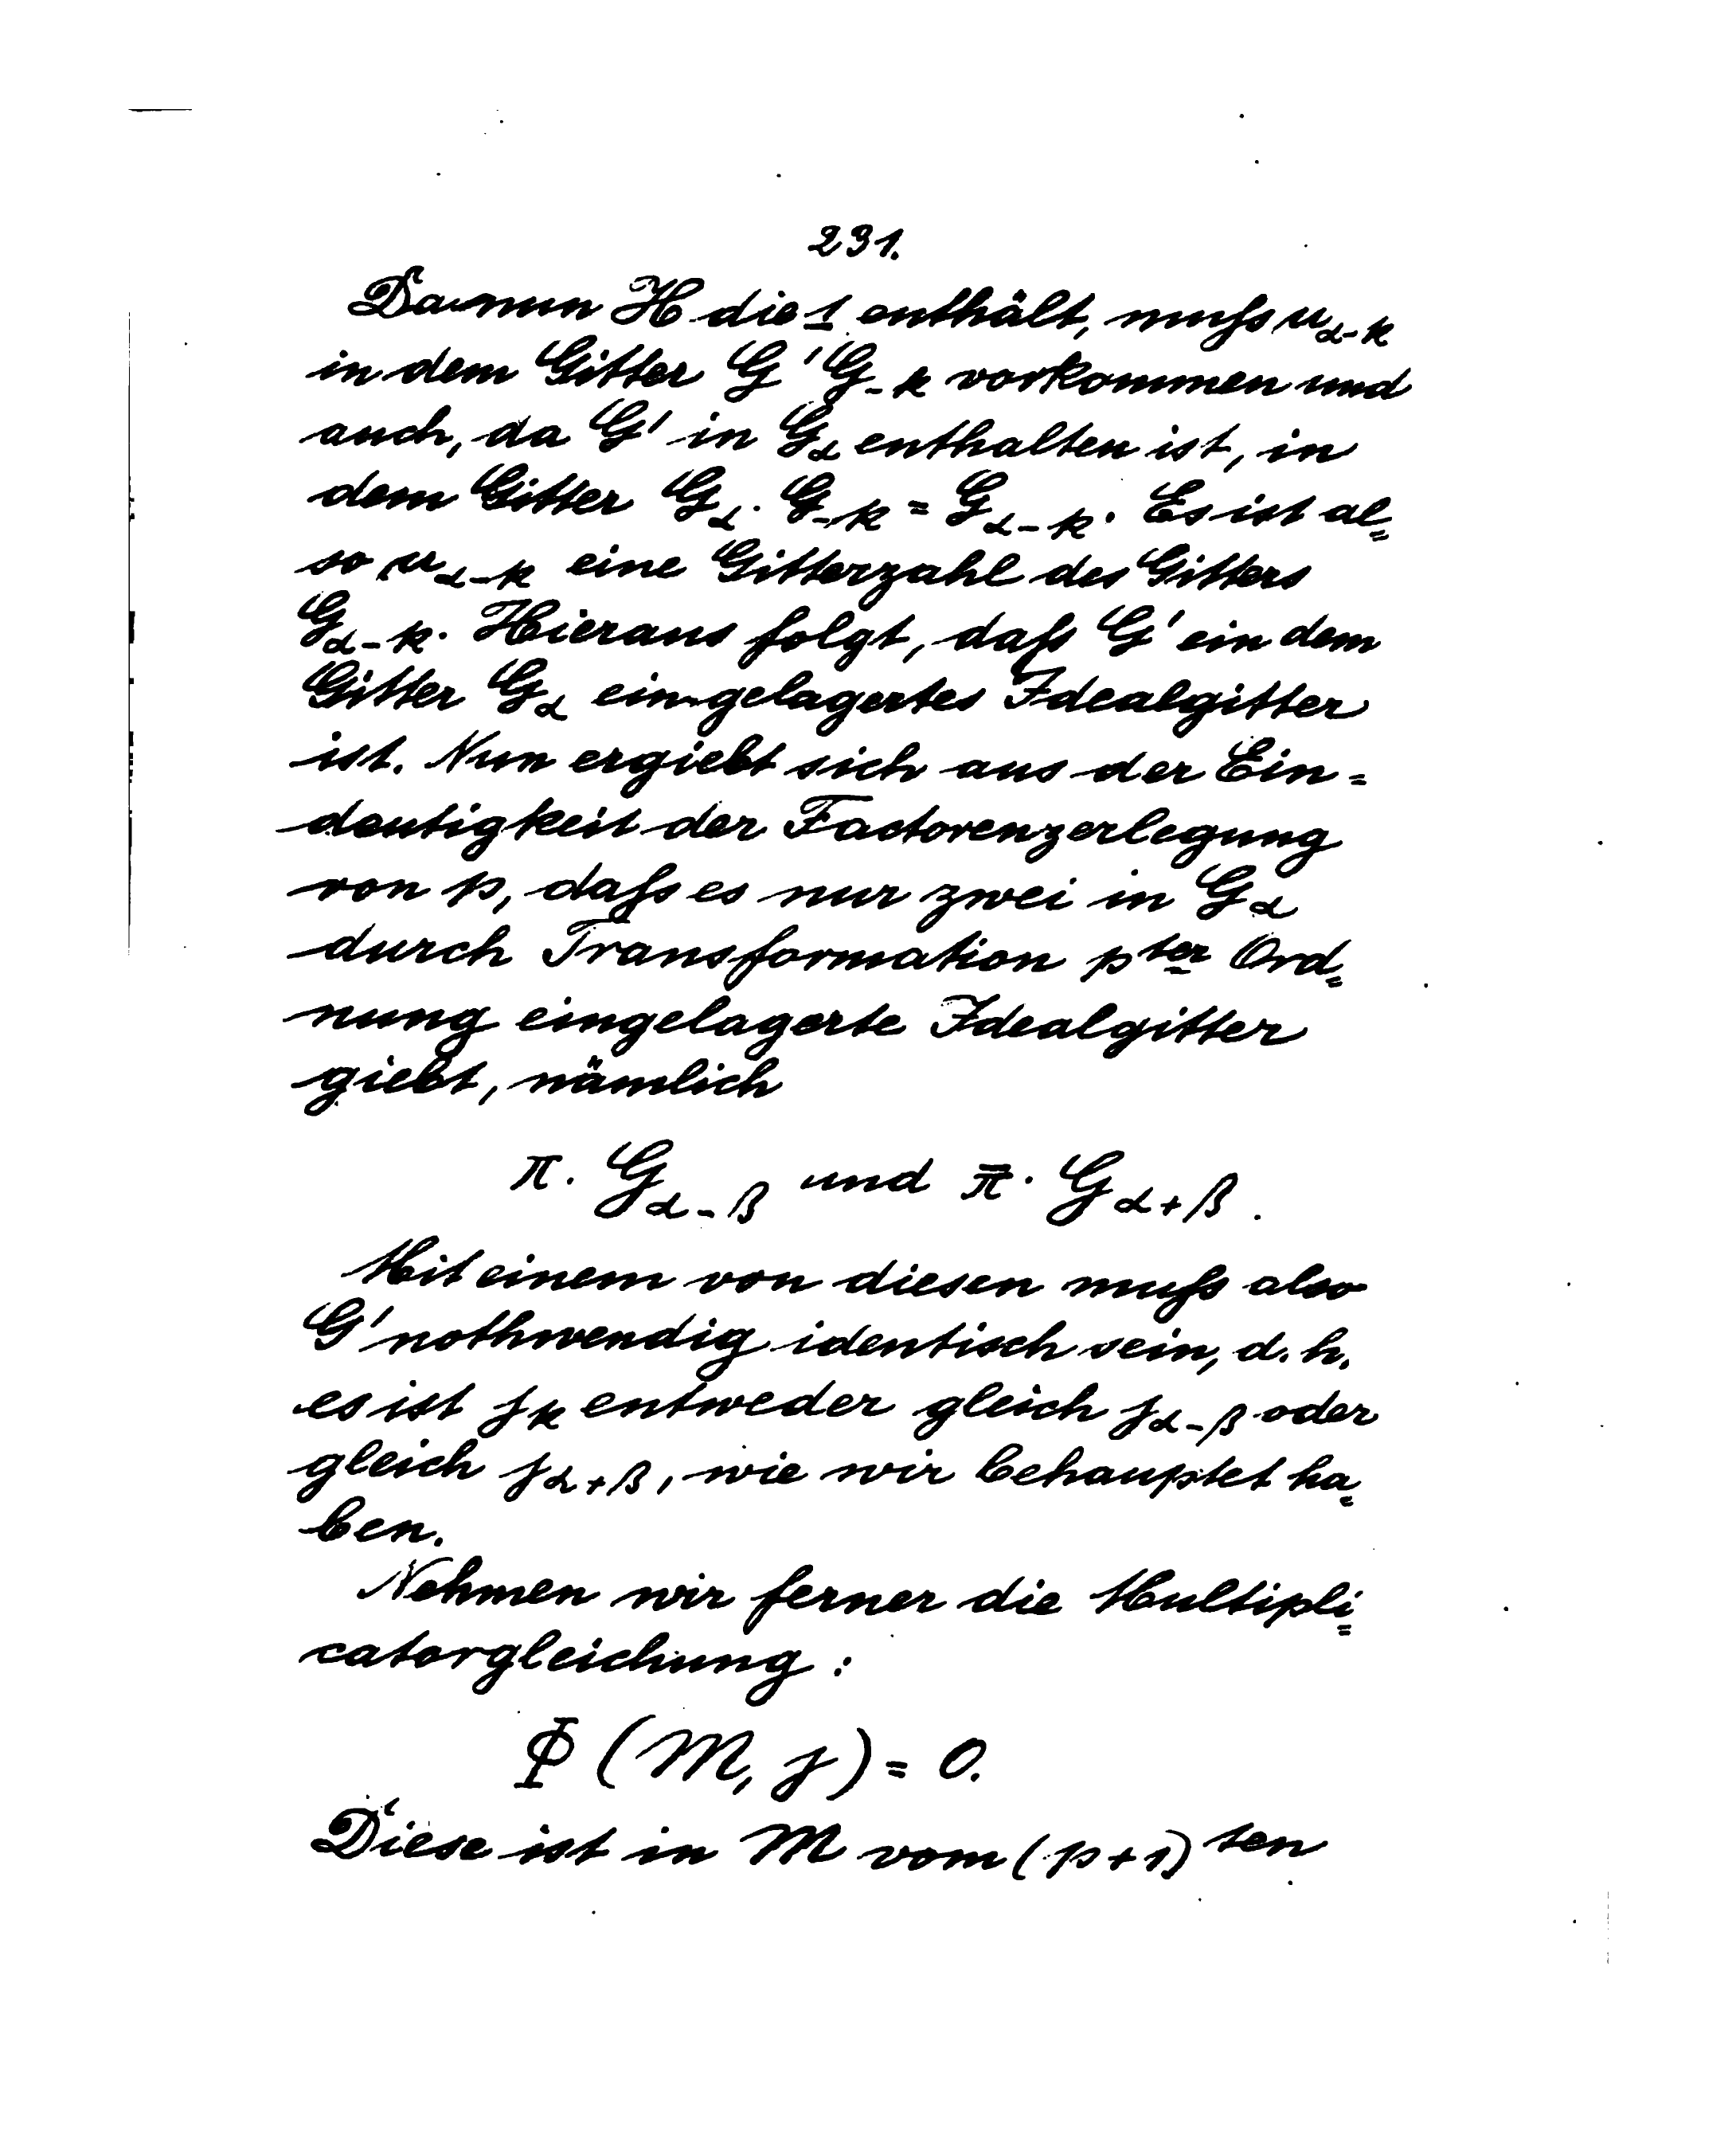 231.
Da nun H die 1 enthält, muſs u_{α-k}
in dem Gitter G' G_{-k} vorkommen und
auch, da G' in G_α enthalten ist, in
dem Gitter G_α · G_{-k} = G_{α-k}. Es ist al=
so u_{α-k} eine Gitterzahl des Gitters
G_{α-k}. Hieraus folgt, daſs G' ein dem
Gitter G_α eingelagertes Idealgitter
ist. Nun ergiebt sich aus der Ein=
deutigkeit der Factorenzerlegung
von p, daſs es nur zwei in G_α
durch Transformation p^{ter} Ord=
nung eingelagerte Idealgitter
giebt, nämlich
π · G_{α-β} und π̄ · G_{α+β}.
Mit einem von diesen muſs also
G' nothwendig identisch sein, d. h.
es ist j_k entweder gleich j_{α-β} oder
gleich j_{α+β}, wie wir behauptet ha=
ben.
Nehmen wir ferner die Multipli=
catorgleichung:
Φ (M, j) = 0.
Diese ist in M vom (p+1)^{ten}